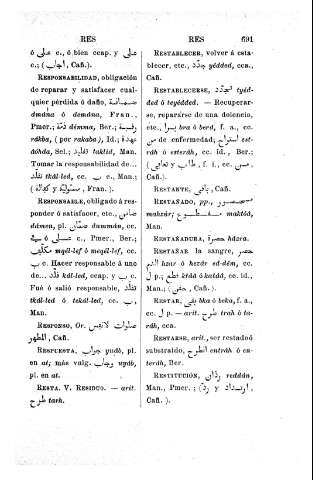 RES
RES
691
ó على c., ó bien ccap. y على
c.; (اجاب, Cañ.).
RESPONSABILIDAD, obligación
de reparar y satisfacer cual-
quier pérdida ó daño, ضمانة
dmána ó demána, Fran.,
Pmer.; ذمّة démma, Ber.;
rákba, (por rakaba), Id.; عهدة
aóhda, Sel.; تقليد taklid, Man.
Tomar la responsabilidad de...
تقلّد tkál-led, cc. ب c., Man.;
(مسئولية y كفالة, Fran.).
RESPONSABLE, obligado á res-
ponder ó satisfacer, etc., ضامن
dámen, pl. ضمّان dammán, cc.
في ó على c., Pmer., Ber.;
مكلّف mqél-lef ó meqél-lef, cc.
ب c. Hacer responsable á uno
de... قلّد kál-led, ccap. y ب c.
Fué ó salió responsable, تقلّد
tkál-led ó tekál-led, cc. ب,
Man.
RESPONSO, Or.
المطهر, Cañ.
RESPUESTA, جواب yuáb, pl.
en at; más vulg. وجاب uyáb,
pl. en at.
RESTA. V. RESIDUO. — arit.
طرح tarh.
RESTABLECER, volver á esta-
blecer, etc., جدّد yédded, cca.,
Cañ.
RESTABLECERSE, تجدّد tyéd-
ded ó teyédded. — Recuperar-
se, repararse de una dolencia,
etc., برا bra ó berd, f. a., cc.
من de enfermedad; استراح est-
ráh ó esteráh, cc. id., Ber.;
(طاب y تعافى, f. i., cc. من,
Cañ.).
RESTANTE, باقي, Cañ.
RESTAÑADO, pp., محصور
mahzúr; مقطوع maktóâ,
Man.
RESTAÑADURA, حصرة házra.
RESTAÑAR la sangre, حصر
الدم hzar ó hezár ed-dém, cc.
ل p.; قطع ktáâ ó katáâ, cc. id.,
Man.; (حقن, Cañ.).
RESTAR, بقى bka ó beka, f. a.,
cc. ل p. — arit. طرح tráh ó ta-
ráh, cca.
RESTARSE, arit., ser restadoó
substraido, انطرح entráh ó en-
teráh, Ber.
RESTITUCIÓN, ردّان reddán,
Man., Pmer.; (ردّ y ارتداد,
Cañ.).